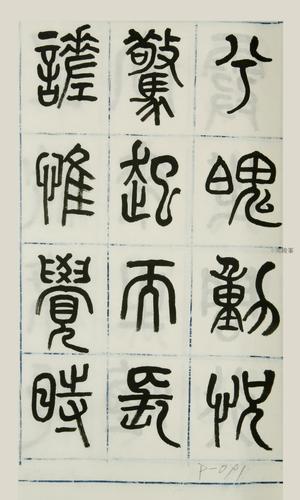 兮魄動怳
驚起而長
嗟惟覺時
P-091